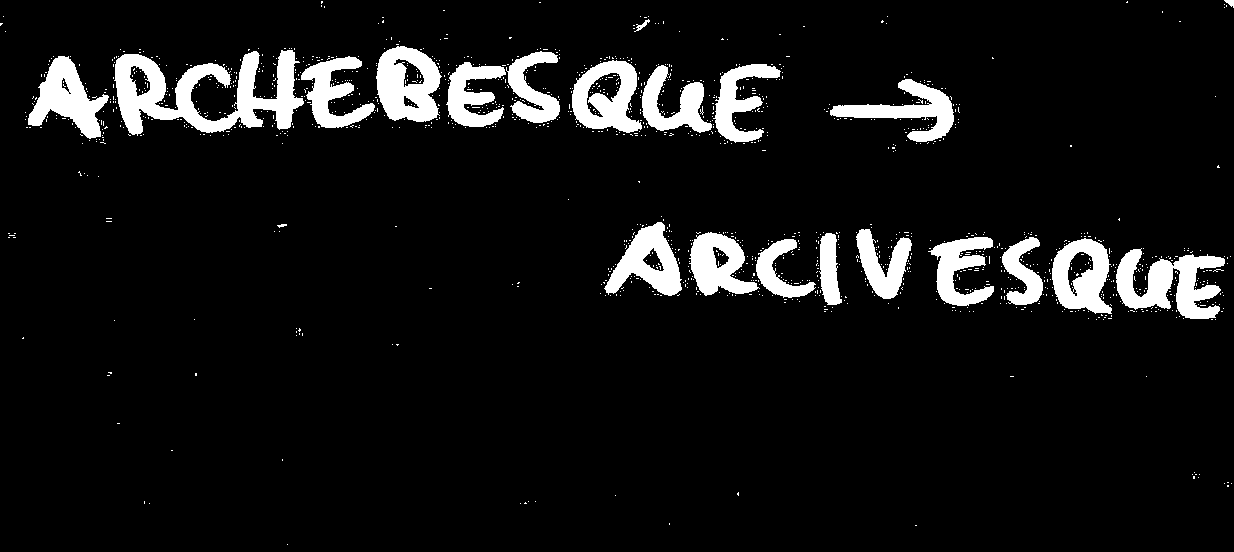 ARCHEBESQUE →
ARCIVESQUE